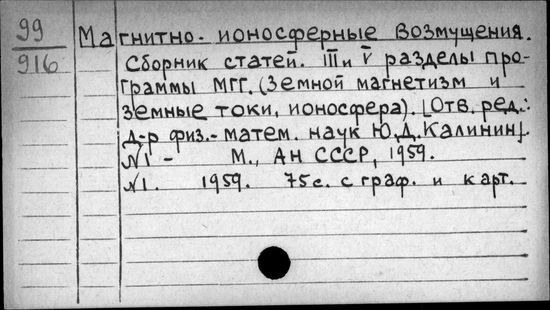 99
916
Магнитно-ионосферные возмущения.
Сборник статей. III и V разделы про-
граммы МГГ. (Земной магнетизм и
земные токи, ионосфера). [Отв. ред.:
д-р физ.-матем. наук Ю.Д. Калинин].
№1 - М., АН СССР, 1959.
№1. 1959. 75 с. с граф. и карт.